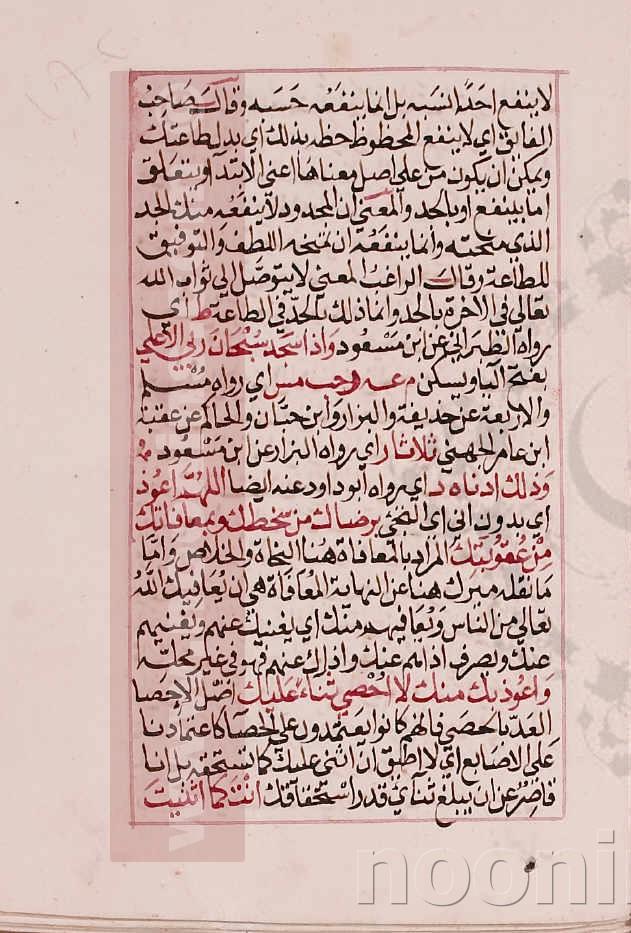 لا ينفع احدًا نسبه بل انما ينفعه حسبه وقال صاحب
الفائق اي لا ينفع المحظوظ حظه بذلك اي بدل طاعتك
ويمكن ان يكون من على اصل معناها اعنى الابتدا ويتعلق
اما بينفع او بالجد والمعنى ان المجدود لا ينفعه منك الجد
الذى منحته وانما ينفعه ان تمنحه اللطف والتوفيق
للطاعة وقال الراغب المعنى لا يتوصل الى ثواب الله
تعالى في الاخرة بالجد وانما ذلك بالجد في الطاعة ط اي
رواه الطبراني عن ابن مسعود واذا سجد سبحان ربي الاعلى
بفتح اليا ويسكن م عه حب مس اي رواه مسلم
والاربعة عن حذيفة والبزار وابن حبان والحاكم عن عقبة
ابن عامر الجهني ثلاثا ر اي رواه البزار عن ابن مسعود
وذلك ادناه د اي رواه ابو داود عنه ايضا اللهم اعوذ
اي بدون اني اي الخ برضاك من سخطك وبمعافاتك
من عقوبتك المراد بالمعافاة هنا النجاة والخلاص واما
ما نقله ميرك هنا عن النهاية المعافاة هي ان يعافيك الله
تعالى من الناس ويعافيهم منك اي يغنيك عنهم ويغنيهم
عنك ويصرف اذاهم عنك واذاك عنهم فهو في غير محله
واعوذ بك منك لا احصي ثناء عليك اصل الاحصا
العد بالحصى فانهم كانوا يعتمدون على الحصا كاعتمادنا
على الاصابع اي لا اطيق ان اثني عليك كما تستحقه بل انا
قاصر عن ان يبلغ ثنائي قدر استحقاقك انت كما اثنيت
nooni